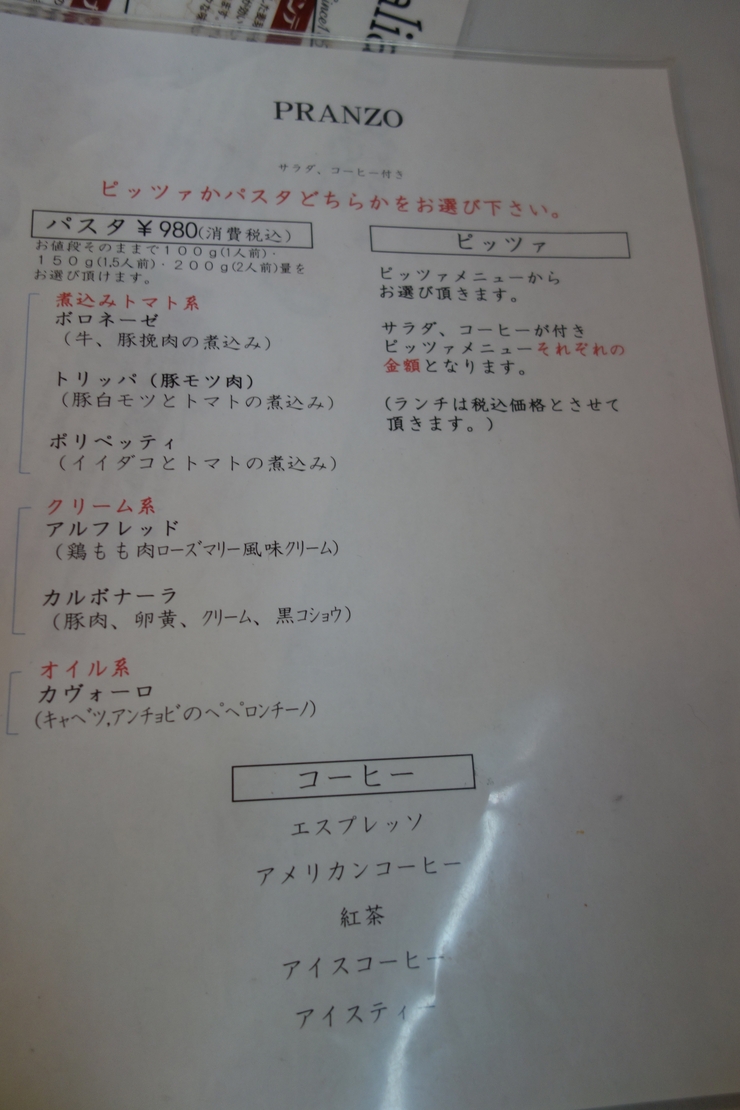 alia
Since1.95
PRANZO
サラダ、コーヒー付き
ピッツァかパスタどちらかをお選び下さい。
パスタ￥980(消費税込)
お値段そのままで１００ｇ(1人前)・
１５０ｇ(1,5人前)・２００ｇ(2人前)量を
お選び頂けます。
煮込みトマト系
ボロネーゼ
（牛、豚挽肉の煮込み）
トリッパ（豚モツ肉）
（豚白モツとトマトの煮込み）
ポリペッティ
（イイダコとトマトの煮込み）
クリーム系
アルフレッド
（鶏もも肉ﾛｰｽﾞﾏﾘｰ風味ｸﾘｰﾑ）
カルボナーラ
（豚肉、卵黄、ｸﾘｰﾑ、黒ｺｼｮｳ）
オイル系
カヴォーロ
(ｷｬﾍﾞﾂ,ｱﾝﾁｮﾋﾞのﾍﾟﾍﾟﾛﾝﾁｰﾉ)
ピッツァ
ピッツァメニューから
お選び頂きます。
サラダ、コーヒーが付き
ピッツァメニューそれぞれの
金額となります。
(ランチは税込価格とさせて
頂きます。)
コーヒー
エスプレッソ
アメリカンコーヒー
紅茶
アイスコーヒー
アイスティー